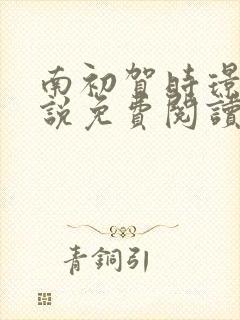 南初賀時璟
說免費閱讀
青銅引